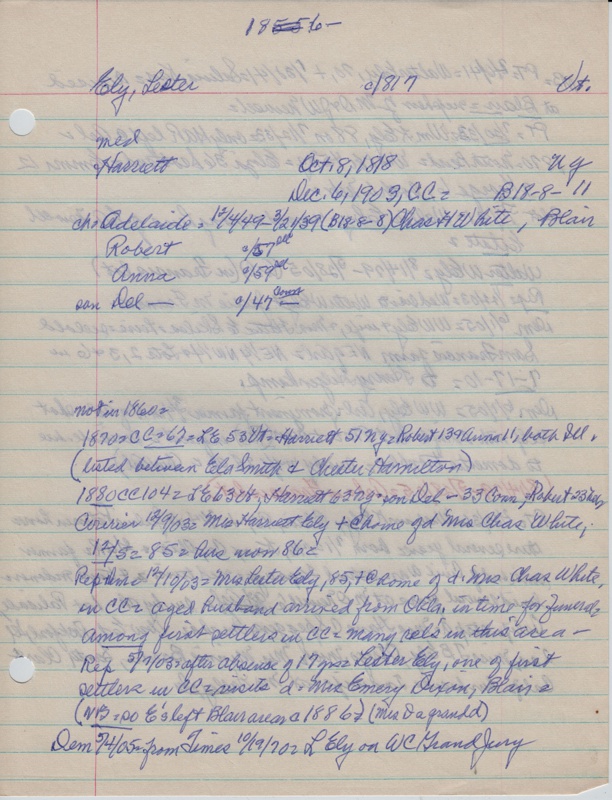 1855 6-
Ely, Lester c/1817 Vt.
med
Harriett Oct. 8, 1818 NY
Dec. 6, 1903, CC= B18-8-11
ch: Adelaide = 12/4/49-3/21/39 (B18-8-8) Chas H White, Blair
Robert c/57 Ill
Anna c/59 Ill
son Del — c/47 Conn
not in 1860=
1870=CC=67= LE 53 Vt= Harriett 51 NY= Robert 13 & Anna 11, both Ill.
(listed between Ela Smith & Chester Hamilton)
1880 CC 104= LE 63 Vt, Harriett 63 NY= son Del - 33 Conn, Robert 23
Courier 12/9/03= Mrs Harriett Ely + C home of d Mrs Chas White;
12/5= 85= hus now 86=
Rep 12/10/03= Mrs Lester Ely, 85, + C home of d Mrs Chas White,
in CC= aged husband arrived from Okla, in time for funeral=
among first settlers in CC= many rels in this area —
Rep 5/7/03= after absence of 17 yrs= Lester Ely, one of first
settlers in CC= visits d= Mrs Emery Dixon, Blair=
(NB= so E's left Blair area c 1886=) (Mrs D a grandd)
Dem 5/4/05= from Times 10/19/70= L Ely on WC Grand Jury